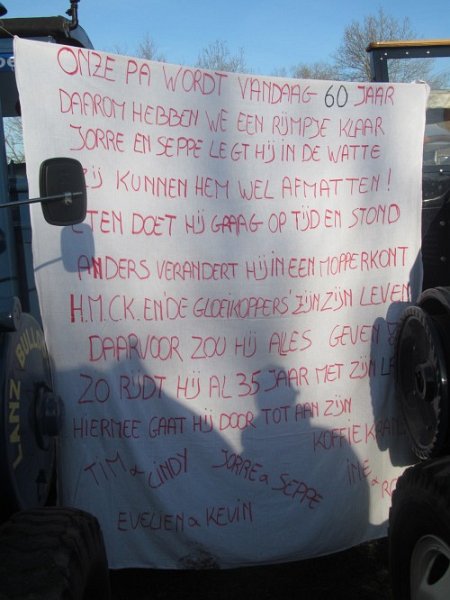 ONZE PA WORDT VANDAAG 60 JAAR
DAAROM HEBBEN WE EEN RIJMPJE KLAAR
JORRE EN SEPPE LEGT HIJ IN DE WATTE
ZIJ KUNNEN HEM WEL AFMATTEN!
ETEN DOET HIJ GRAAG OP TIJD EN STOND
ANDERS VERANDERT HIJ IN EEN MOPPERKONT
H.M.C.K. EN 'DE GLOEIKOPPERS' ZIJN ZIJN LEVEN
DAARVOOR ZOU HIJ ALLES GEVEN
ZO RIJDT HIJ AL 35 JAAR MET ZIJN
HIERMEE GAAT HIJ DOOR TOT AAN ZIJN
KOFFIEKRAN
TIM & CINDY JORRE & SEPPE INE &
EVELIEN & KEVIN
LANZ BULLDOG